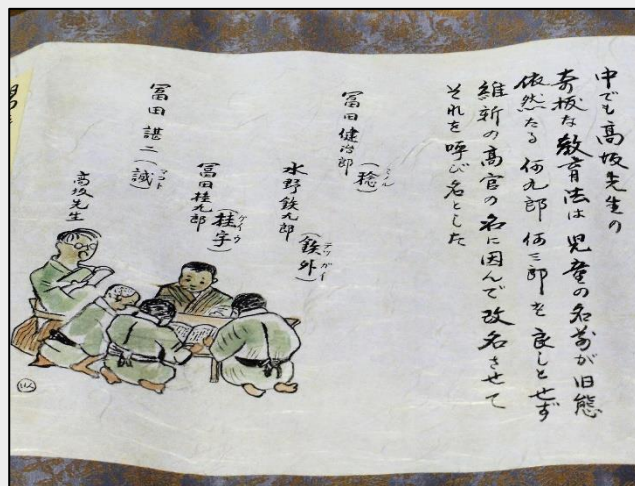 中でも高坂先生の
奇抜な教育法は児童の名前が旧態
依然たる何九郎何三郎を良しとせず
維新の高官の名に因んで改名させて
それを呼び名とした
冨田健治郎
(稔)ミノル
水野鉄九郎
(鉄外)テツガイ
冨田桂九郎
(桂宇)ケイウ
冨田諶二(誠)マコト
高坂先生